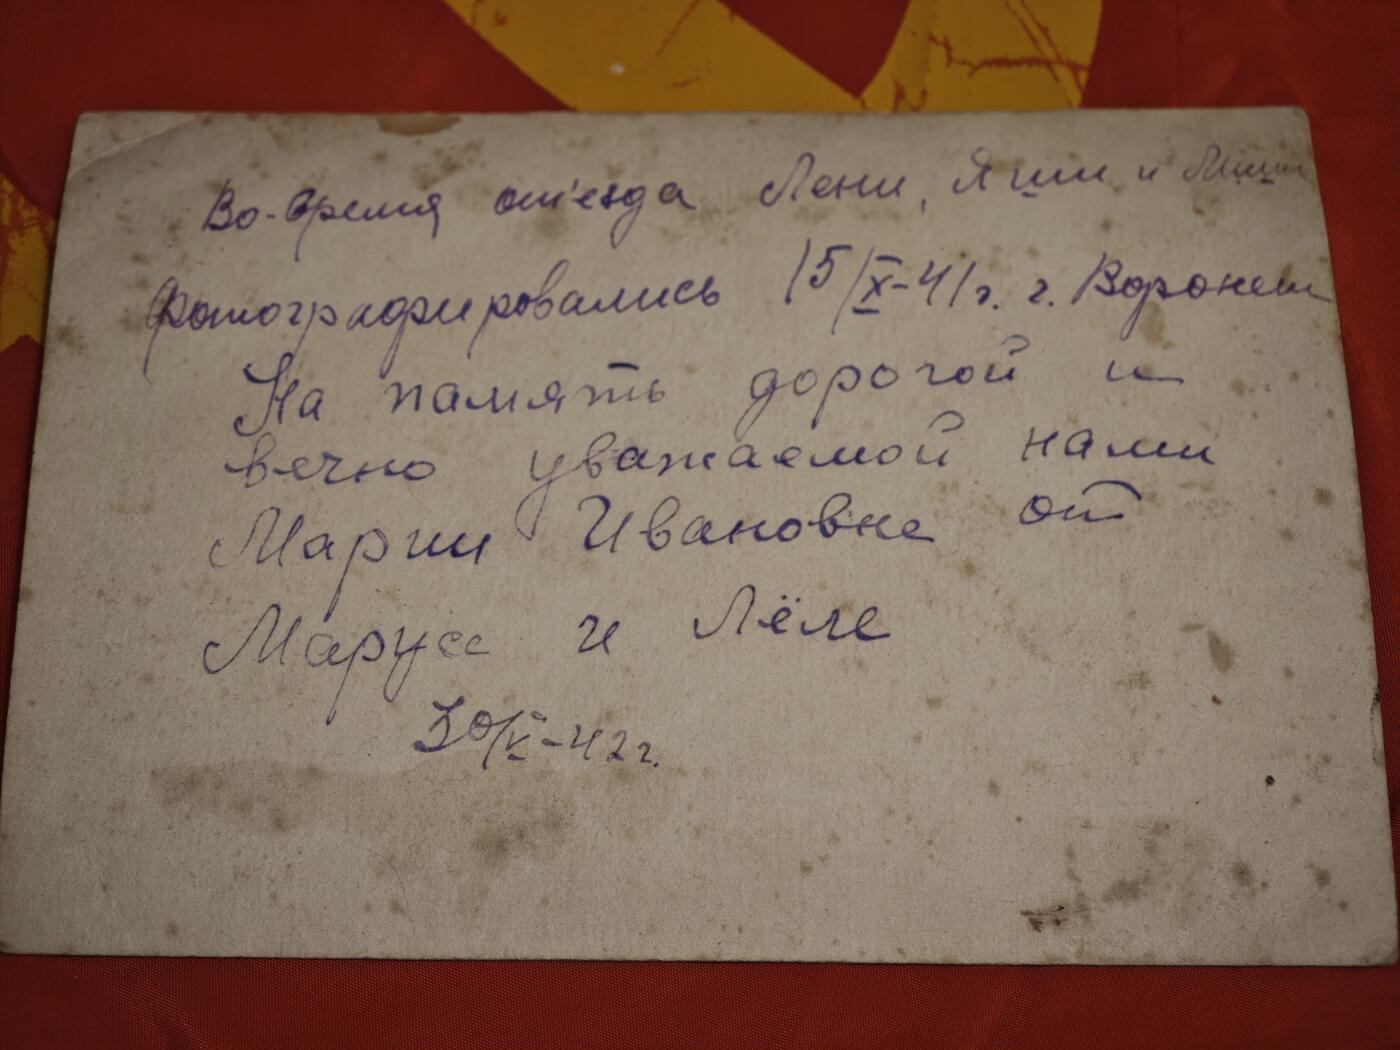 Во-время от'езда Лени, Яши и Миши
Фотографировались 15/X-41г. г. Воронеж
На память дорогой и
вечно уважаемой нами
Марии Ивановне от
Маруси и Лёле
30/V-42г.